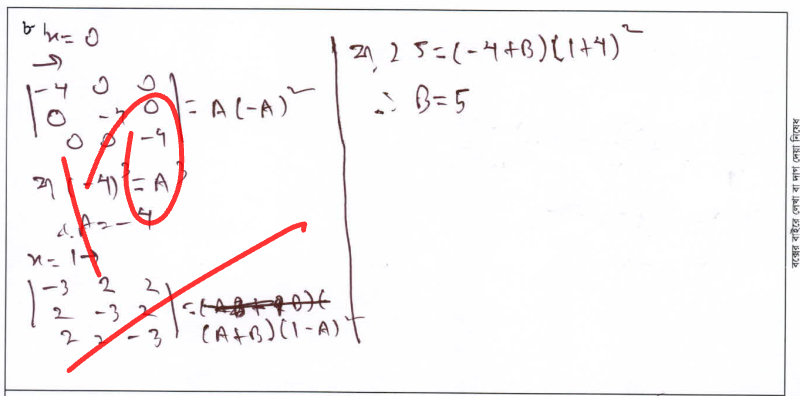 x = 0
→
| -4 0 0 |
| 0 -4 0 | = A(-A)²
| 0 0 -4 |
বা, (-4)³ = A³
∴ A = -4
x = 1 →
| -3 2 2 |
| 2 -3 2 | =
| 2 2 -3 | (A+B)(1-A)²
বা, 25 = (-4+B)(1+4)²
∴ B = 5
বক্সের বাইরে লেখা বা দাগ দেয়া নিষেধ